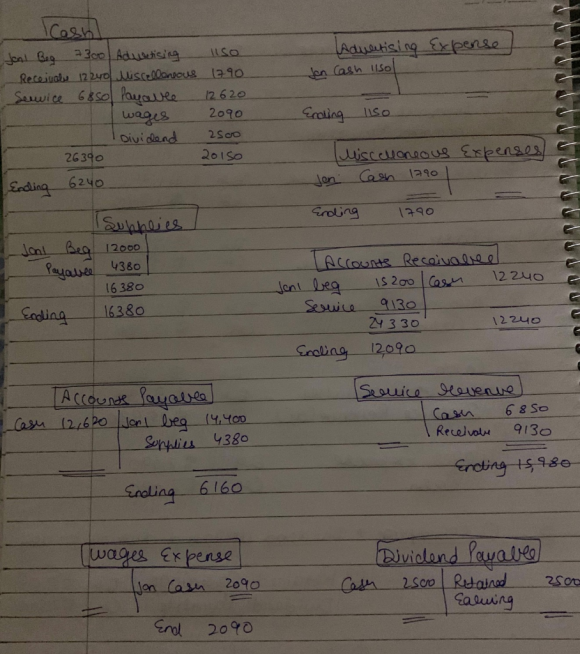 Cash
Jan1 Beg 7300 Advertising 1150
Receivable 12240 Miscellaneous 1790
Service 6850 Payable 12620
Wages 2090
Dividend 2500
26390 20150
Ending 6240
Advertising Expense
Jan Cash 1150
Ending 1150
Miscellaneous Expenses
Jan Cash 1790
Ending 1790
Supplies
Jan1 Beg 12000
Payable 4380
16380
Ending 16380
Accounts Receivable
Jan1 beg 15200 Cash 12240
Service 9130
24330 12240
Ending 12,090
Accounts Payable
Cash 12,620 Jan1 beg 14,400
Supplies 4380
Ending 6160
Service Revenue
Cash 6850
Receivable 9130
Ending 15,980
Wages Expense
Jan Cash 2090
End 2090
Dividend Payable
Cash 2500 Retained 2500
Earning